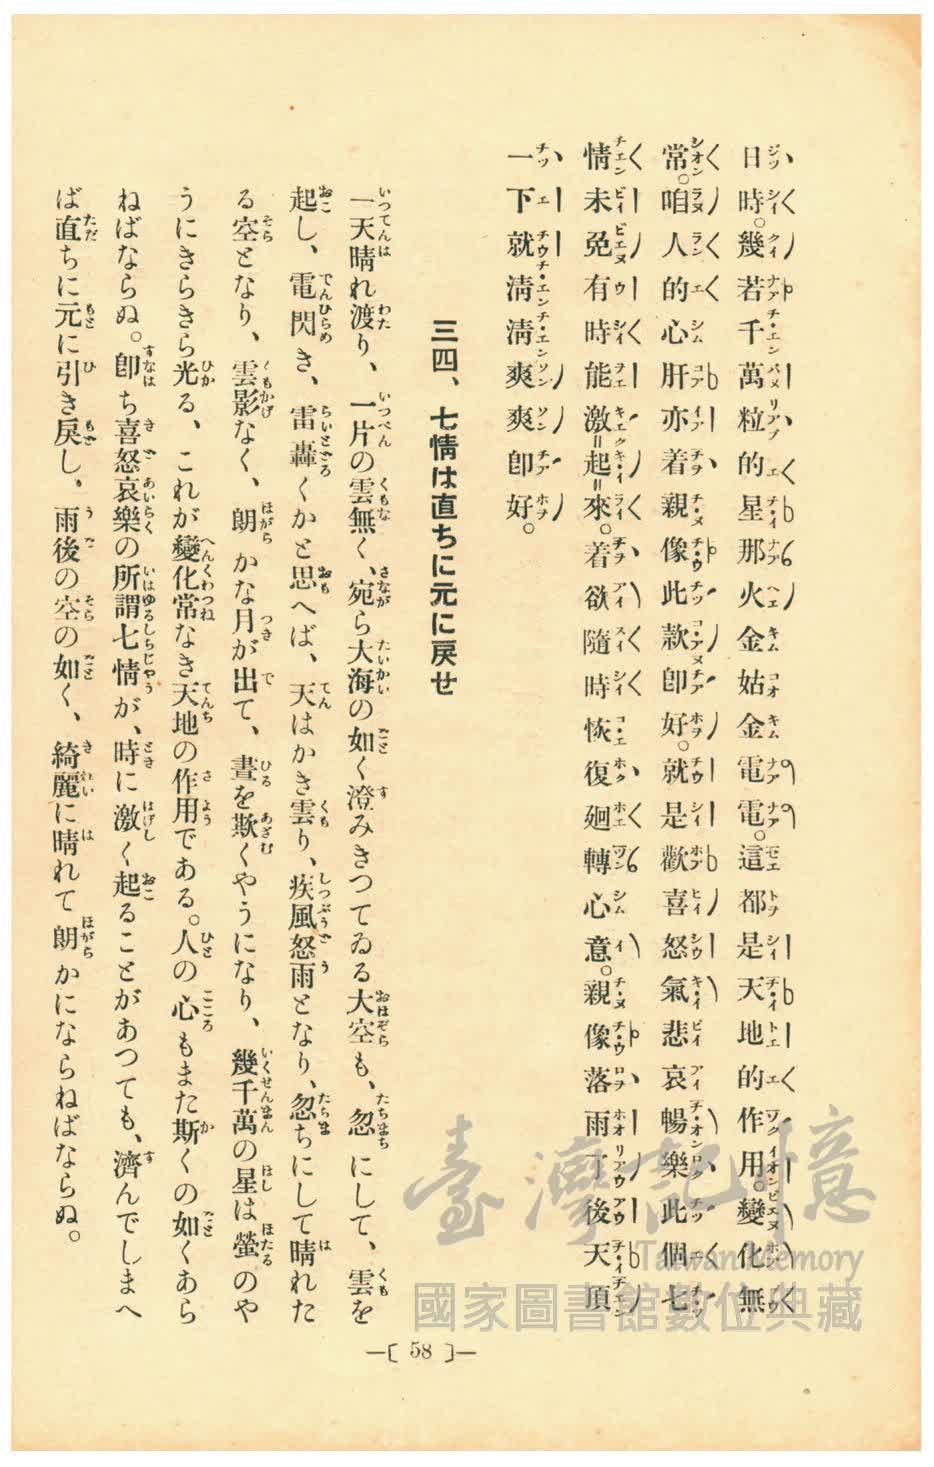 日時。幾若千萬粒的星那火金姑金電電。這都是天地的作用。變化無
常。咱人的心肝亦着親像此款卽好。就是歡喜怒氣悲哀暢樂此個七
情未免有時能激起來。着欲隨時恢復廻轉心意。親像落雨了後天頂
一下就淸淸爽爽卽好。
三四、七情は直ちに元に戻せ
一天晴れ渡り、一片の雲無く、宛ら大海の如く澄みきつてゐる大空も、忽にして、雲を
起し、電閃き、雷轟くかと思へば、天はかき雲り、疾風怒雨となり、忽ちにして晴れた
る空となり、雲影なく、朗かな月が出て、晝を欺くやうになり、幾千萬の星は螢のや
うにきらきら光る、これが變化常なき天地の作用である。人の心もまた斯くの如くあら
ねばならぬ。卽ち喜怒哀樂の所謂七情が、時に激く起ることがあつても、濟んでしまへ
ば直ちに元に引き戻し、雨後の空の如く、綺麗に晴れて朗かにならねばならぬ。
—〔 58 〕—
臺灣記憶
Taiwan Memory
國家圖書館數位典藏